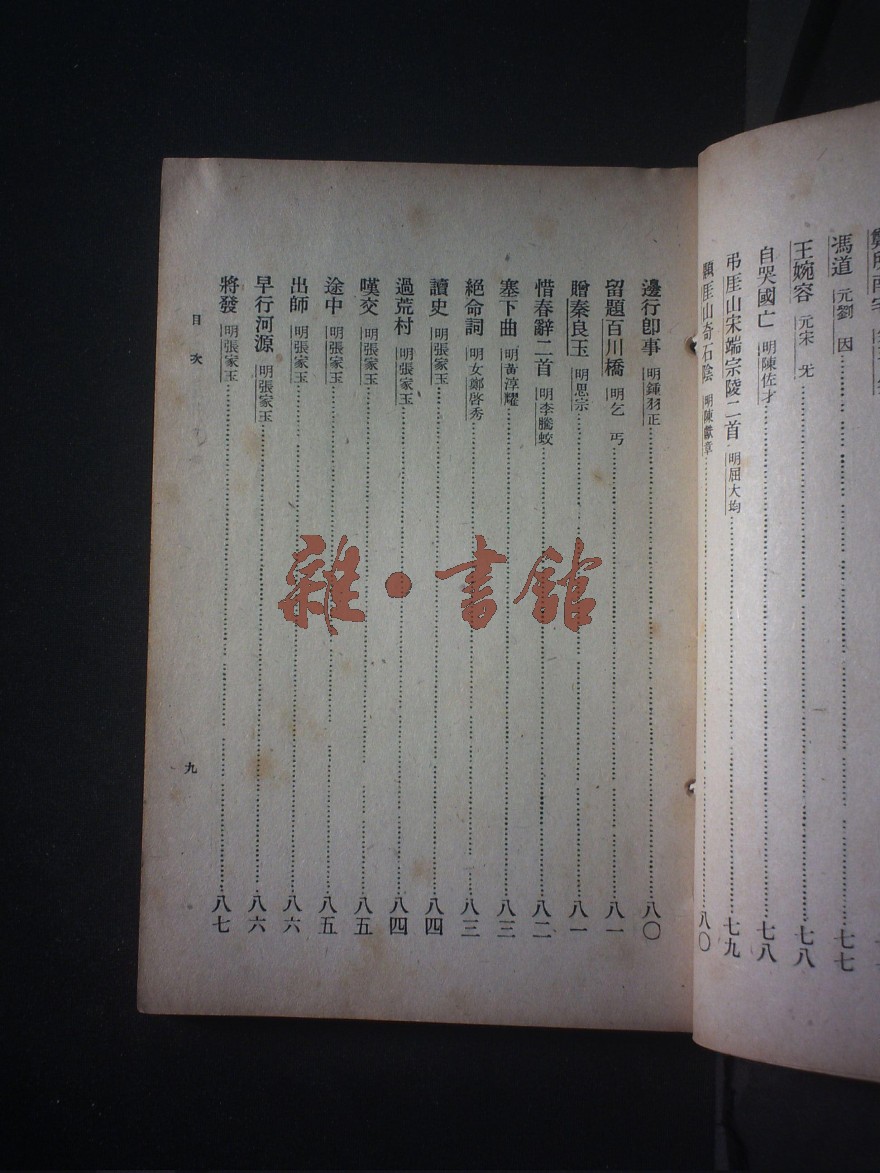 馮道 元劉 因 七七
王婉容 元宋 无 七八
自哭國亡 明陳佐才 七八
弔厓山宋端宗陵二首 明屈大均 七九
題厓山奇石陰 明陳獻章 八〇
邊行卽事 明鍾羽正 八〇
留題百川橋 明乞 丐 八一
贈秦良玉 明思宗 八一
惜春辭二首 明李騰蛟 八二
塞下曲 明黃淳耀 八三
絕命詞 明女鄭啓秀 八三
讀史 明張家玉 八四
過荒村 明張家玉 八四
嘆交 明張家玉 八五
途中 明張家玉 八五
出師 明張家玉 八六
早行河源 明張家玉 八六
將發 明張家玉 八七
目次
九
雜·書館